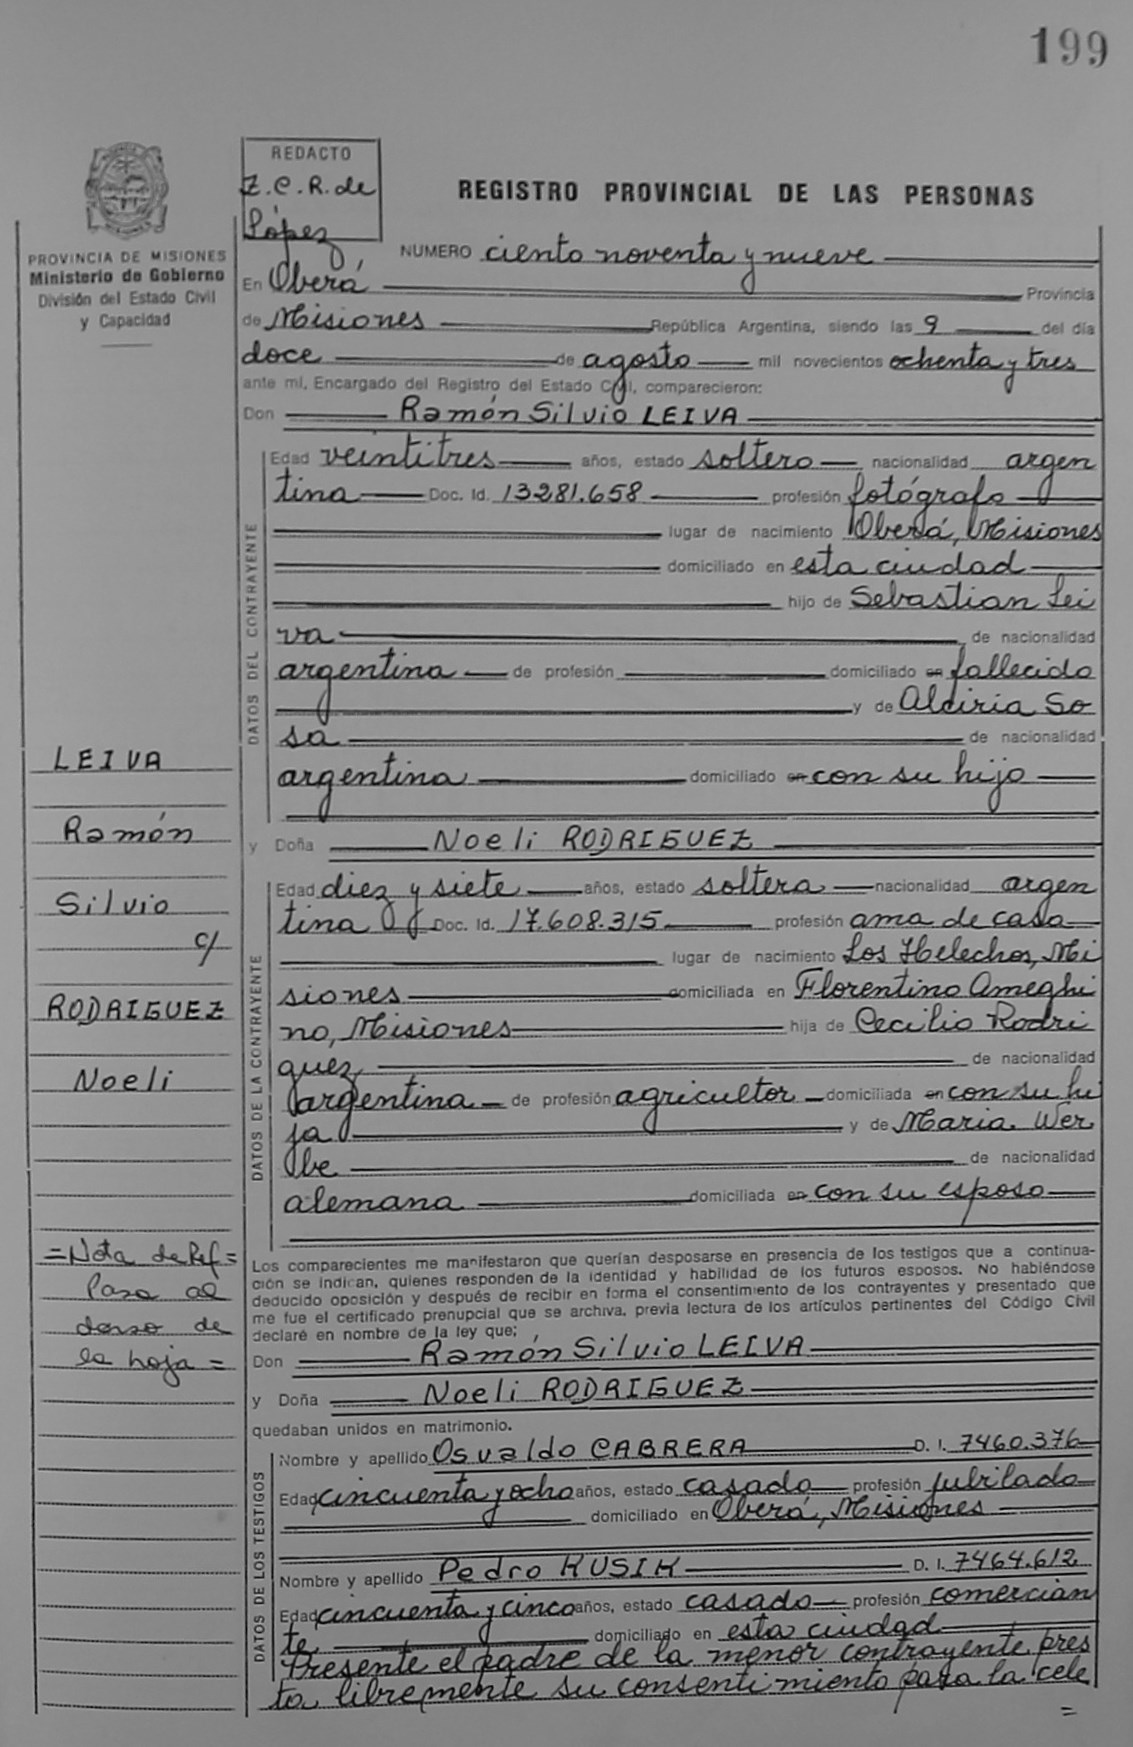 199
REDACTO
Z.C.R. de
López
REGISTRO PROVINCIAL DE LAS PERSONAS
PROVINCIA DE MISIONES
Ministerio de Gobierno
División del Estado Civil
y Capacidad
NUMERO ciento noventa y nueve
En Oberá Provincia
de Misiones República Argentina, siendo las 9 del día
doce de agosto mil novecientos ochenta y tres
ante mí, Encargado del Registro del Estado Civil, comparecieron:
Don Ramón Silvio LEIVA
DATOS DEL CONTRAYENTE
Edad veintitres años, estado soltero nacionalidad argen
tina Doc. Id. 13281.658 profesión fotógrafo
lugar de nacimiento Oberá, Misiones
domiciliado en esta ciudad
hijo de Sebastian Lei
va de nacionalidad
argentina de profesión domiciliado en fallecido
y de Alciria So
sa de nacionalidad
argentina domiciliado en con su hijo
y Doña Noeli RODRIGUEZ
DATOS DE LA CONTRAYENTE
Edad diez y siete años, estado soltera nacionalidad argen
tina Doc. Id. 17.608.315 profesión ama de casa
lugar de nacimiento Los Helechos, Mi
siones domiciliada en Florentino Ameghi
no, Misiones hija de Cecilio Rodri
guez de nacionalidad
argentina de profesión agricultor domiciliada en con su hi
ja y de Maria Wer
be de nacionalidad
alemana domiciliada en con su esposo
LEIVA
Ramón
Silvio
c/
RODRIGUEZ
Noeli
=Nota de Ref=
Pasa al
dorso de
la hoja=
Los comparecientes me manifestaron que querían desposarse en presencia de los testigos que a continua-
ción se indican, quienes responden de la identidad y habilidad de los futuros esposos. No habiéndose
deducido oposición y después de recibir en forma el consentimiento de los contrayentes y presentado que
me fue el certificado prenupcial que se archiva, previa lectura de los artículos pertinentes del Código Civil
declaré en nombre de la ley que;
Don Ramón Silvio LEIVA
y Doña Noeli RODRIGUEZ
quedaban unidos en matrimonio.
DATOS DE LOS TESTIGOS
Nombre y apellido Osvaldo CABRERA D. I. 7460.376
Edad cincuenta y ocho años, estado casado profesión jubilado
domiciliado en Oberá, Misiones
Nombre y apellido Pedro KUSIK D. I. 7464.612
Edad cincuenta y cinco años, estado casado profesión comercian
te domiciliado en esta ciudad
Presente el padre de la menor contrayente pres
ta libremente su consentimiento para la cele
=